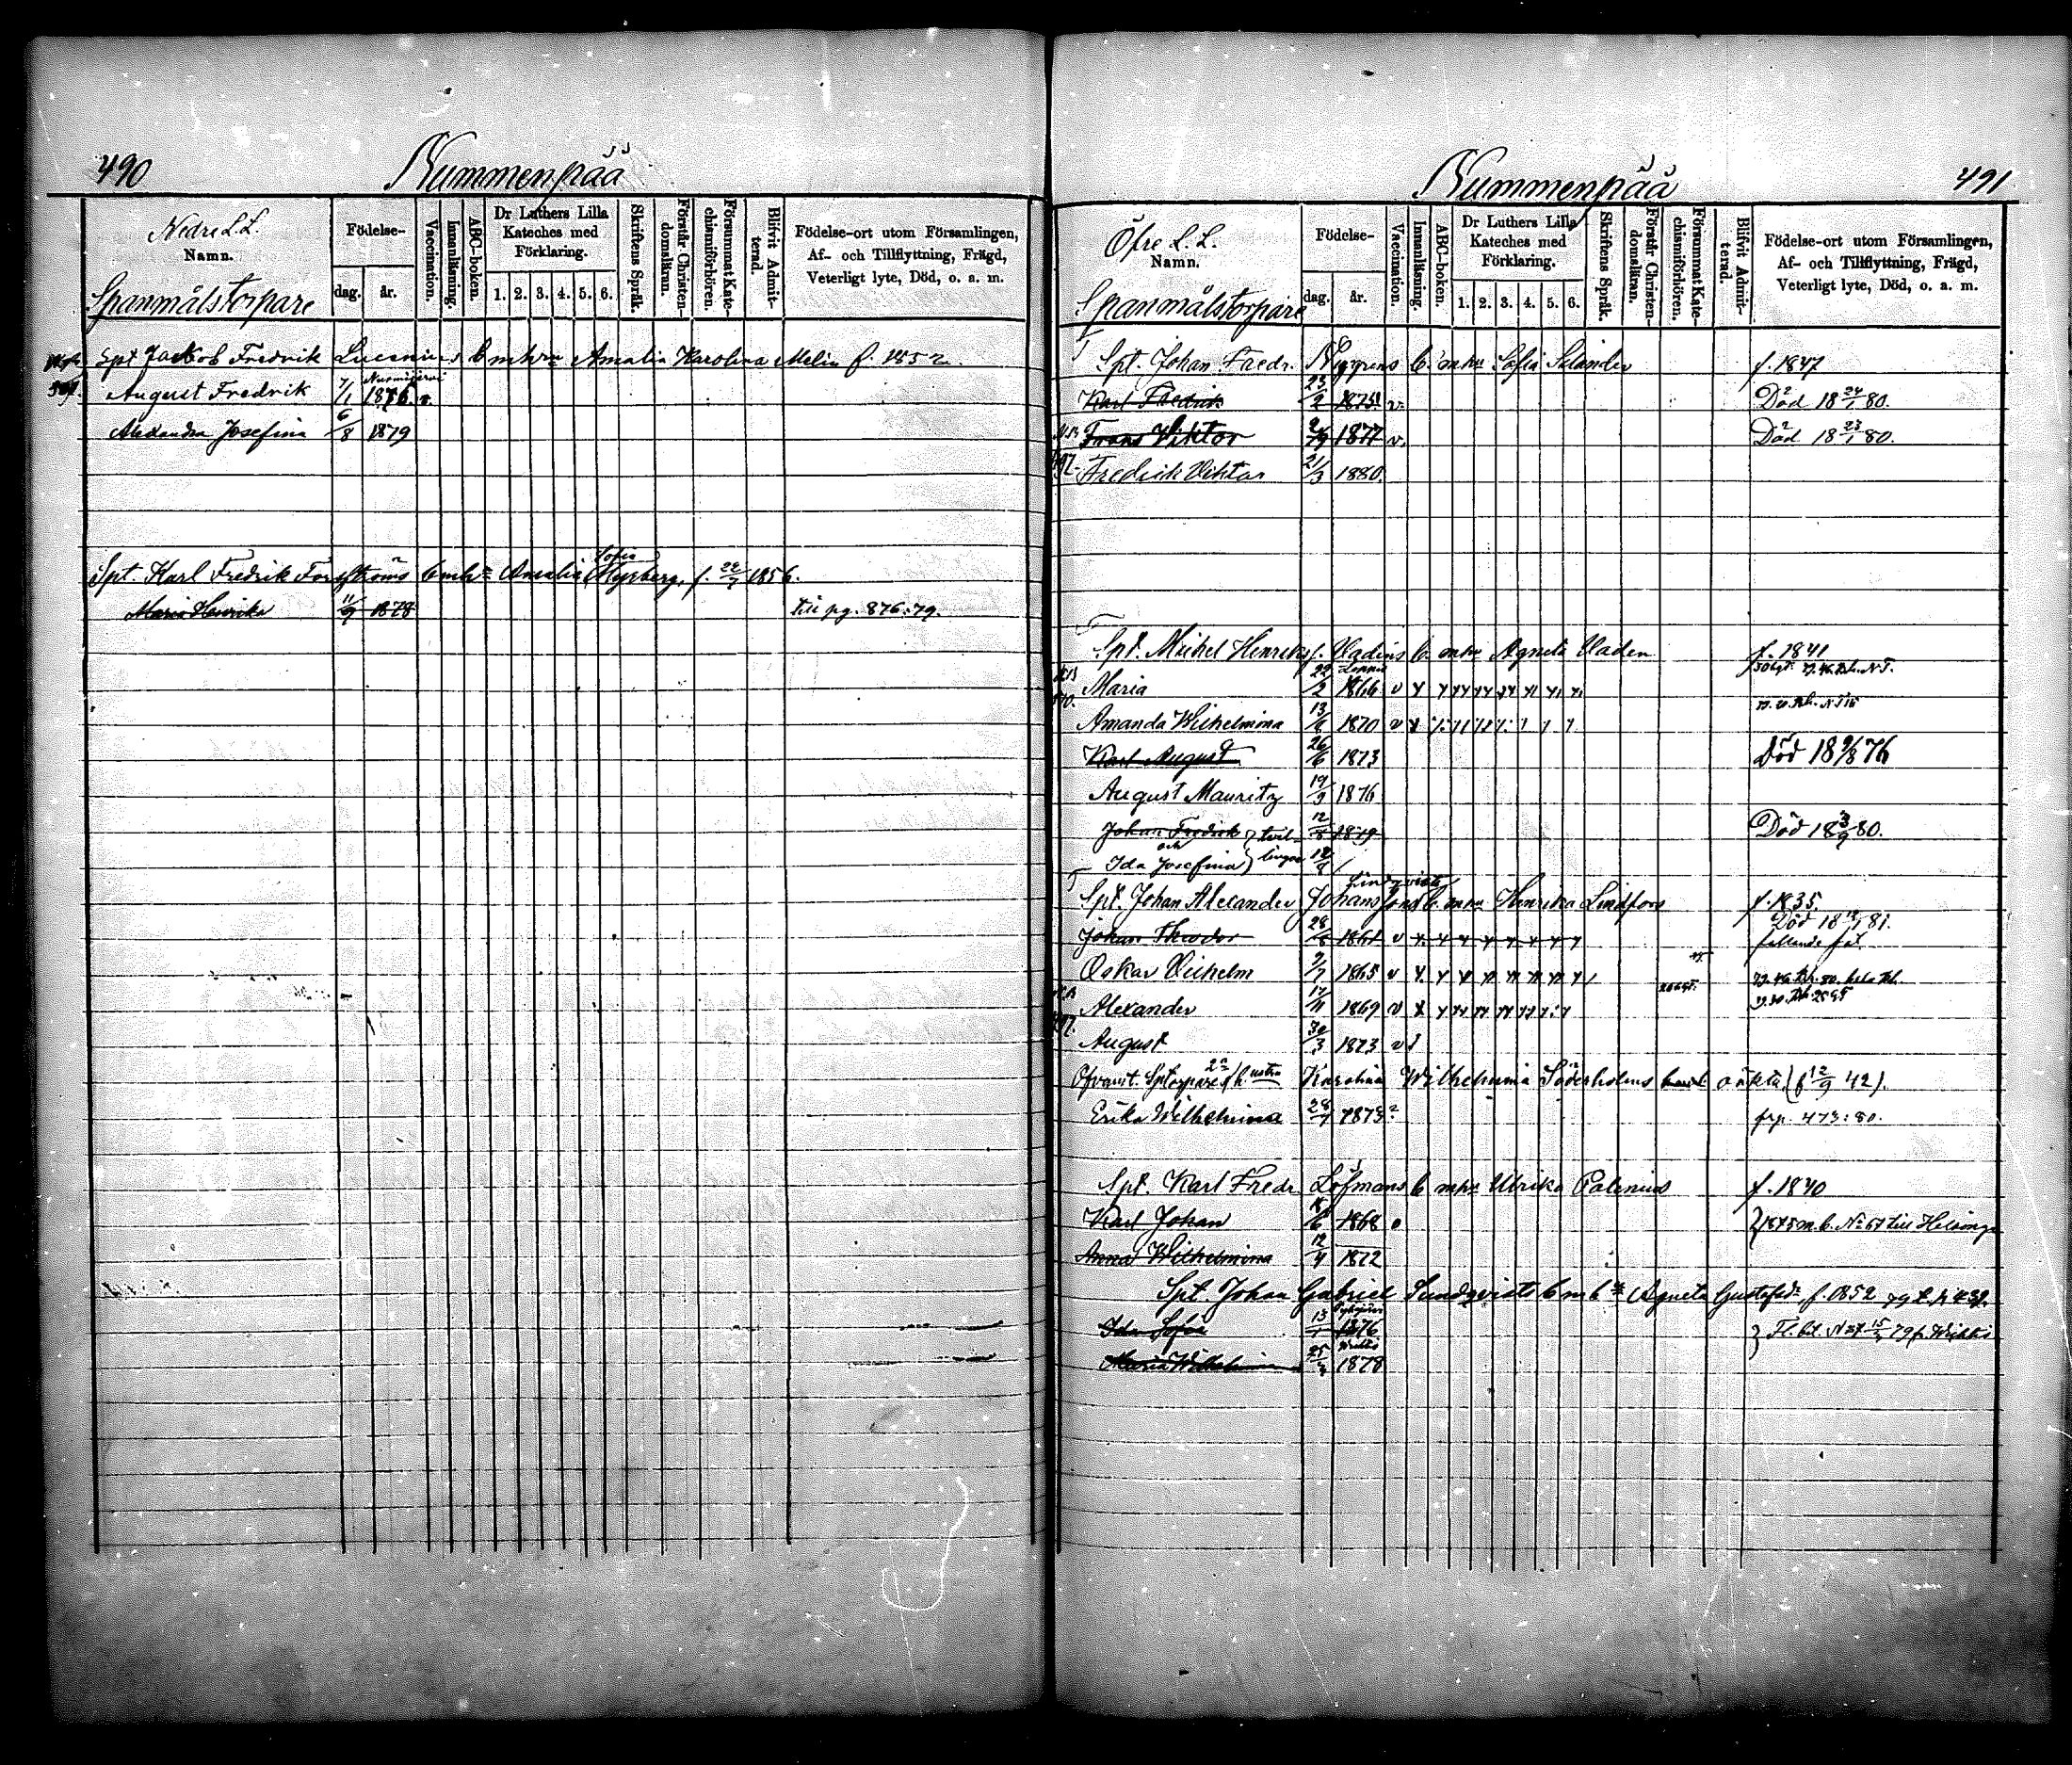 490
Nummenpää
Nedre L.L.
Namn.
Spanmålstorpare
Födelse-
dag. år.
Vaccination.
Innanläsning.
ABC-boken.
Dr Luthers Lilla Kateches med Förklaring.
1. 2. 3. 4. 5. 6.
Skriftens Språk.
Förstår Christendomsläran.
Försummat Katechismiförhören.
Blifvit Admitterad.
Födelse-ort utom Församlingen, Af- och Tillflyttning, Frägd, Veterligt lyte, Död, o. a. m.
Spt Jackob Fredrik Lucenius b mhru Amalia Karolina Melin f. 1852
August Fredrik 7/1 1876 v.
Alexandra Josefina 6/8 1879
Spt. Karl Fredrik Forsströms b mhn Amalia Sofia Myrberg, f. 22/7 1856.
Maria Henrika 11/9 1878 till pg. 876:79.
Nummenpää
491
Öfre L. L.
Namn.
Spanmålstorpare
Födelse-
dag. år.
Vaccination.
Innanläsning.
ABC-boken.
Dr Luthers Lilla Kateches med Förklaring.
1. 2. 3. 4. 5. 6.
Skriftens Språk.
Förstår Christendomsläran.
Försummat Katechismiförhören.
Blifvit Admitterad.
Födelse-ort utom Församlingen, Af- och Tillflyttning, Frägd, Veterligt lyte, Död, o. a. m.
Spt. Johan Fredr. Nygrens b. m hu Sofia Selander f. 1847
Karl Fredrik 23/2 1875 v. Död 18 24/1 80.
Frans Viktor 1877 v. Död 18 23/1 80.
Fredrik Viktor 21/3 1880.
Spt. Michel Henriks f. Vadens b. m hu Agneta Vaden f. 1841
Maria 22/2 Loppis 1866 v
Amanda Wilhelmina 1870 v
Karl August 26/6 1873 Död 18 9/8 76
August Mauritz 19/9 1876
Johan Fredrik 12/8 1879 Död 18 3/9 80.
och tvillingar
Ida Josefina 12/8
Spt. Johan Alexander Johanssons b. m hu Henrika Lindfors f. 1835.
Lindqvists
Johan Theodor 1861 v Död 18 81.
fallande
Oskar Vilhelm 9/7 1865 v
Alexander 17/11 1869 v
August 30/3 1873 v
Karolina Wilhelmina Söderholms oäkta (f 12/9 42).
Erika Wilhelmina 28/7 1873 frp. 473:80.
Spt. Karl Fredr Löfmans b m hu Ulrika Palenius f. 1840
Karl Johan 1868 1875 m. b. No 67 till Helsingf
Anna Wilhelmina 12/4 1872
Spt. Johan Gabriel Sundqvists b m h Agneta Gustafsdr f. 1852
Ida Sofia 13/1 1876 Fl. bet. No 37 15/ 79 fr. Wichtis
Maria Wilhelmina 25/3 1878